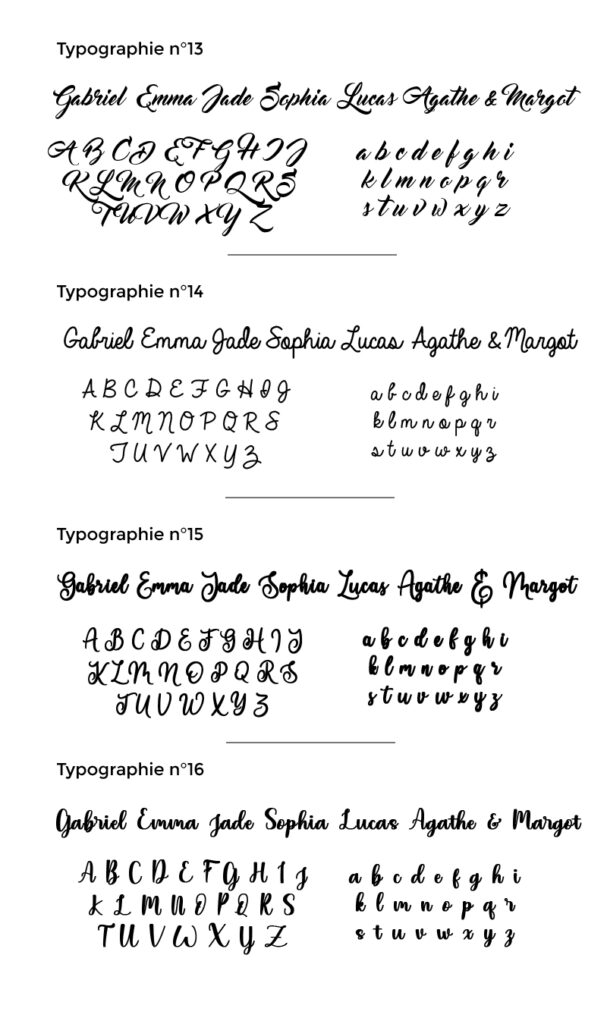 Typographie n°13
Gabriel Emma Jade Sophia Lucas Agathe & Margot
A B C D E F G H I J
a b c d e f g h i
K L M N O P Q R S
k l m n o p q r
T U V W X Y Z
s t u v w x y z
Typographie n°14
Gabriel Emma Jade Sophia Lucas Agathe & Margot
A B C D E F G H I J
a b c d e f g h i
K L M N O P Q R S
k l m n o p q r
T U V W X Y Z
s t u v w x y z
Typographie n°15
Gabriel Emma Jade Sophia Lucas Agathe & Margot
A B C D E F G H I J
a b c d e f g h i
K L M N O P Q R S
k l m n o p q r
T U V W X Y Z
s t u v w x y z
Typographie n°16
Gabriel Emma Jade Sophia Lucas Agathe & Margot
A B C D E F G H I J
a b c d e f g h i
K L M N O P Q R S
k l m n o p q r
T U V W X Y Z
s t u v w x y z